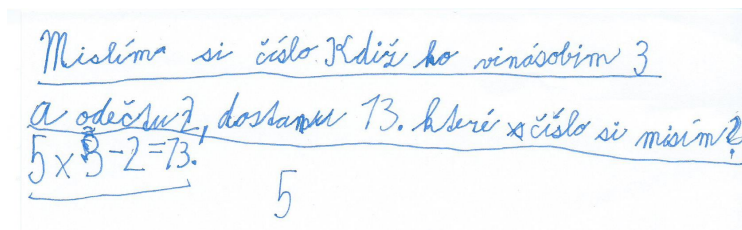 Mislím si číslo. Kdiž ho vinásobim 3
a odečtu 2, dostanu 13. které číslo si misím?
5 x 3 - 2 = 13.
5